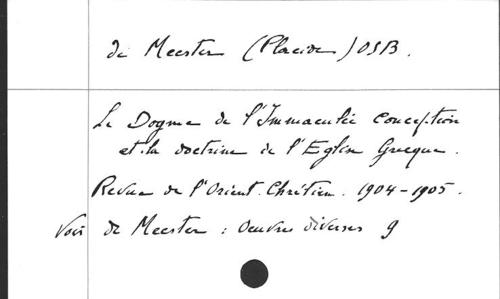 de Meester (Placide) OSB.
Le Dogme de l'Immaculée conception
et la doctrine de l'Eglise Grecque.
Revue de l'Orient Chrétien. 1904-1905.
Voir de Meester : Oeuvres diverses 9